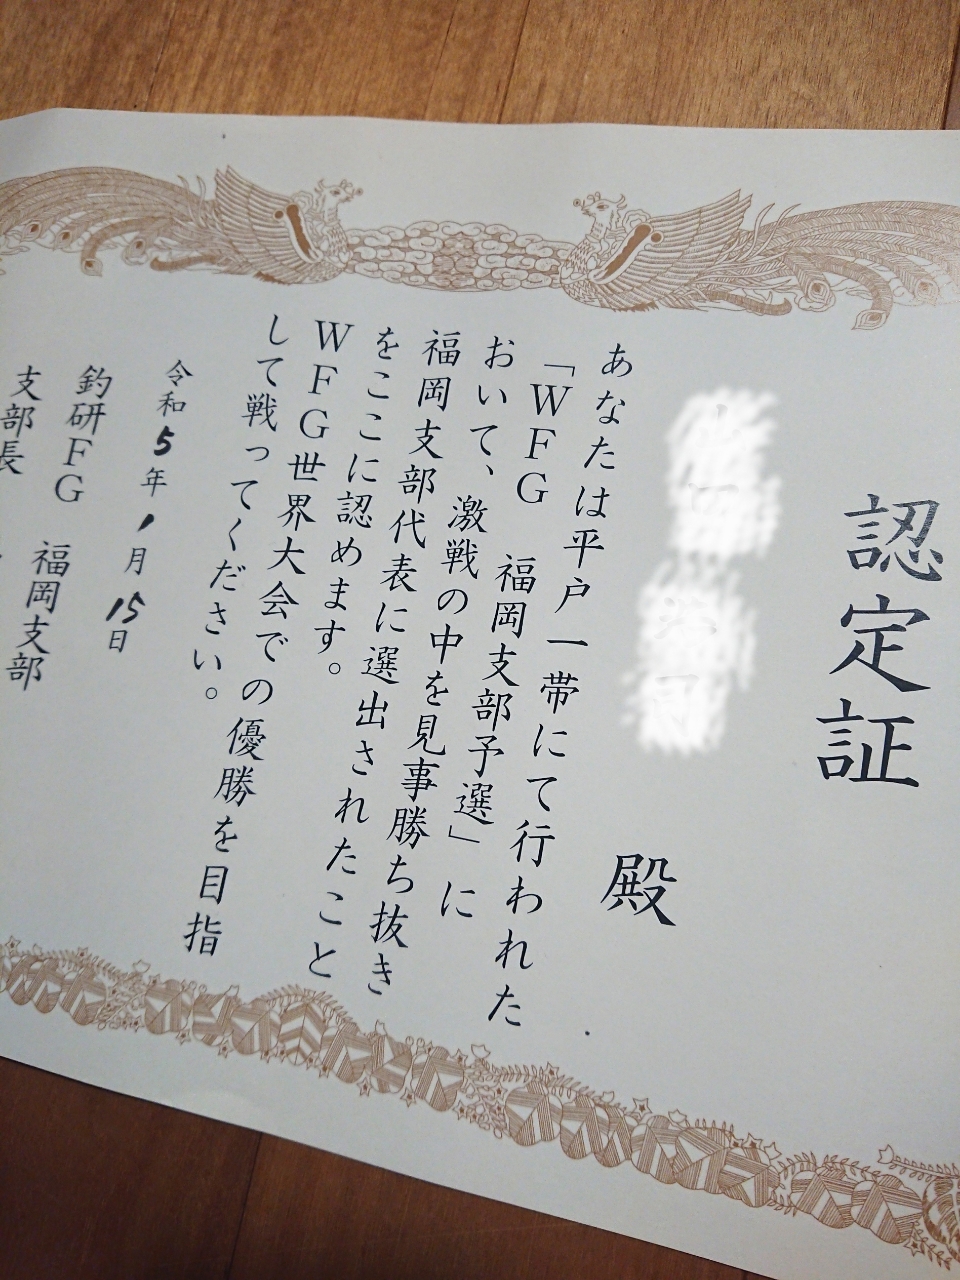 認定証
殿
あなたは平戸一帯にて行われた
「WFG 福岡支部予選」に
おいて、激戦の中を見事勝ち抜き
福岡支部代表に選出されたこと
をここに認めます。
WFG世界大会での優勝を目指
して戦ってください。
令和5年1月15日
釣研FG 福岡支部
支部長